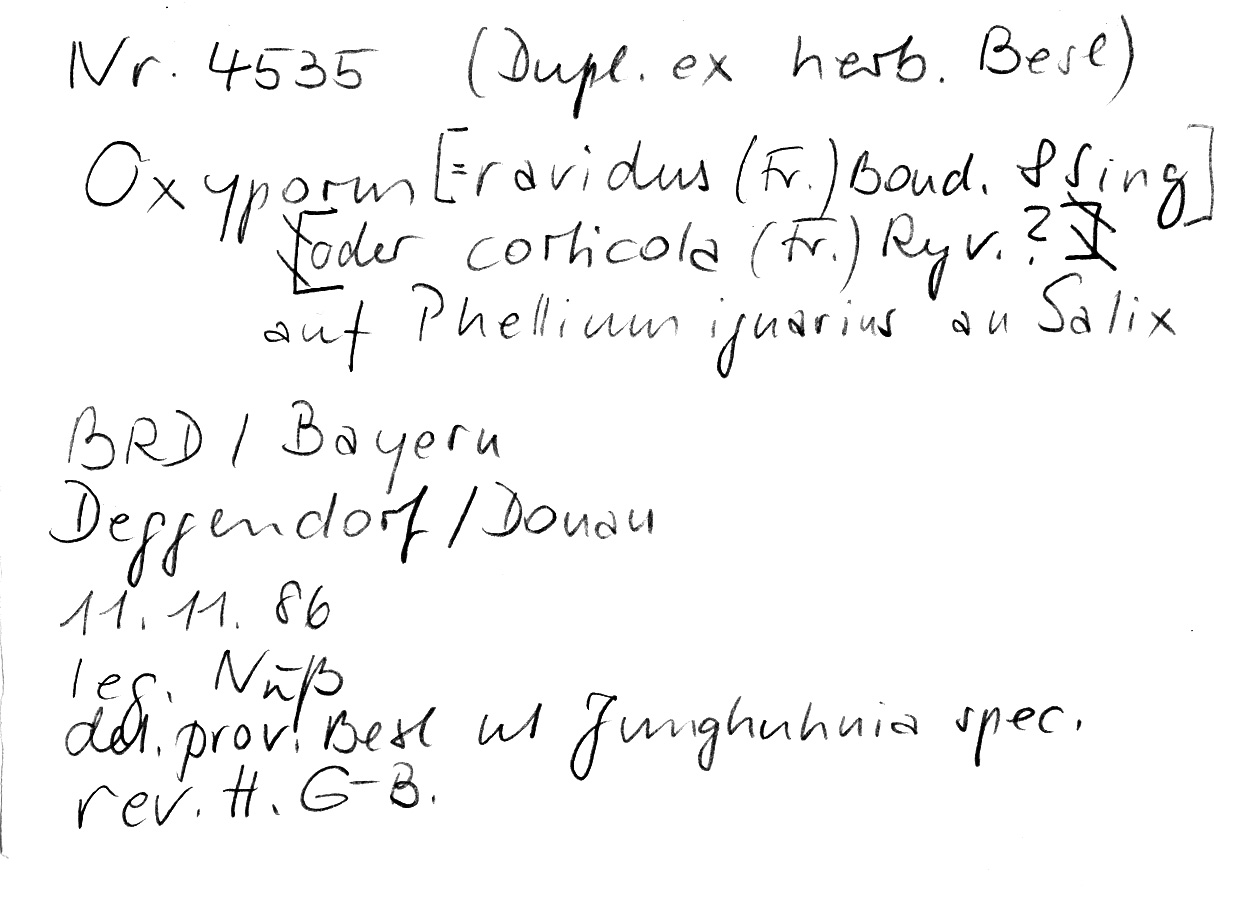 Nr. 4535 (Dupl. ex herb. Besl)
Oxyporus [= ravidus (Fr.) Bond. & Sing]
[oder corticola (Fr.) Ryv. ?]
auf Phellinus igniarius an Salix
BRD / Bayern
Deggendorf / Donau
11. 11. 86
leg. Nuß
det. prov. Besl ut Junghuhnia spec.
rev. H. G-B.